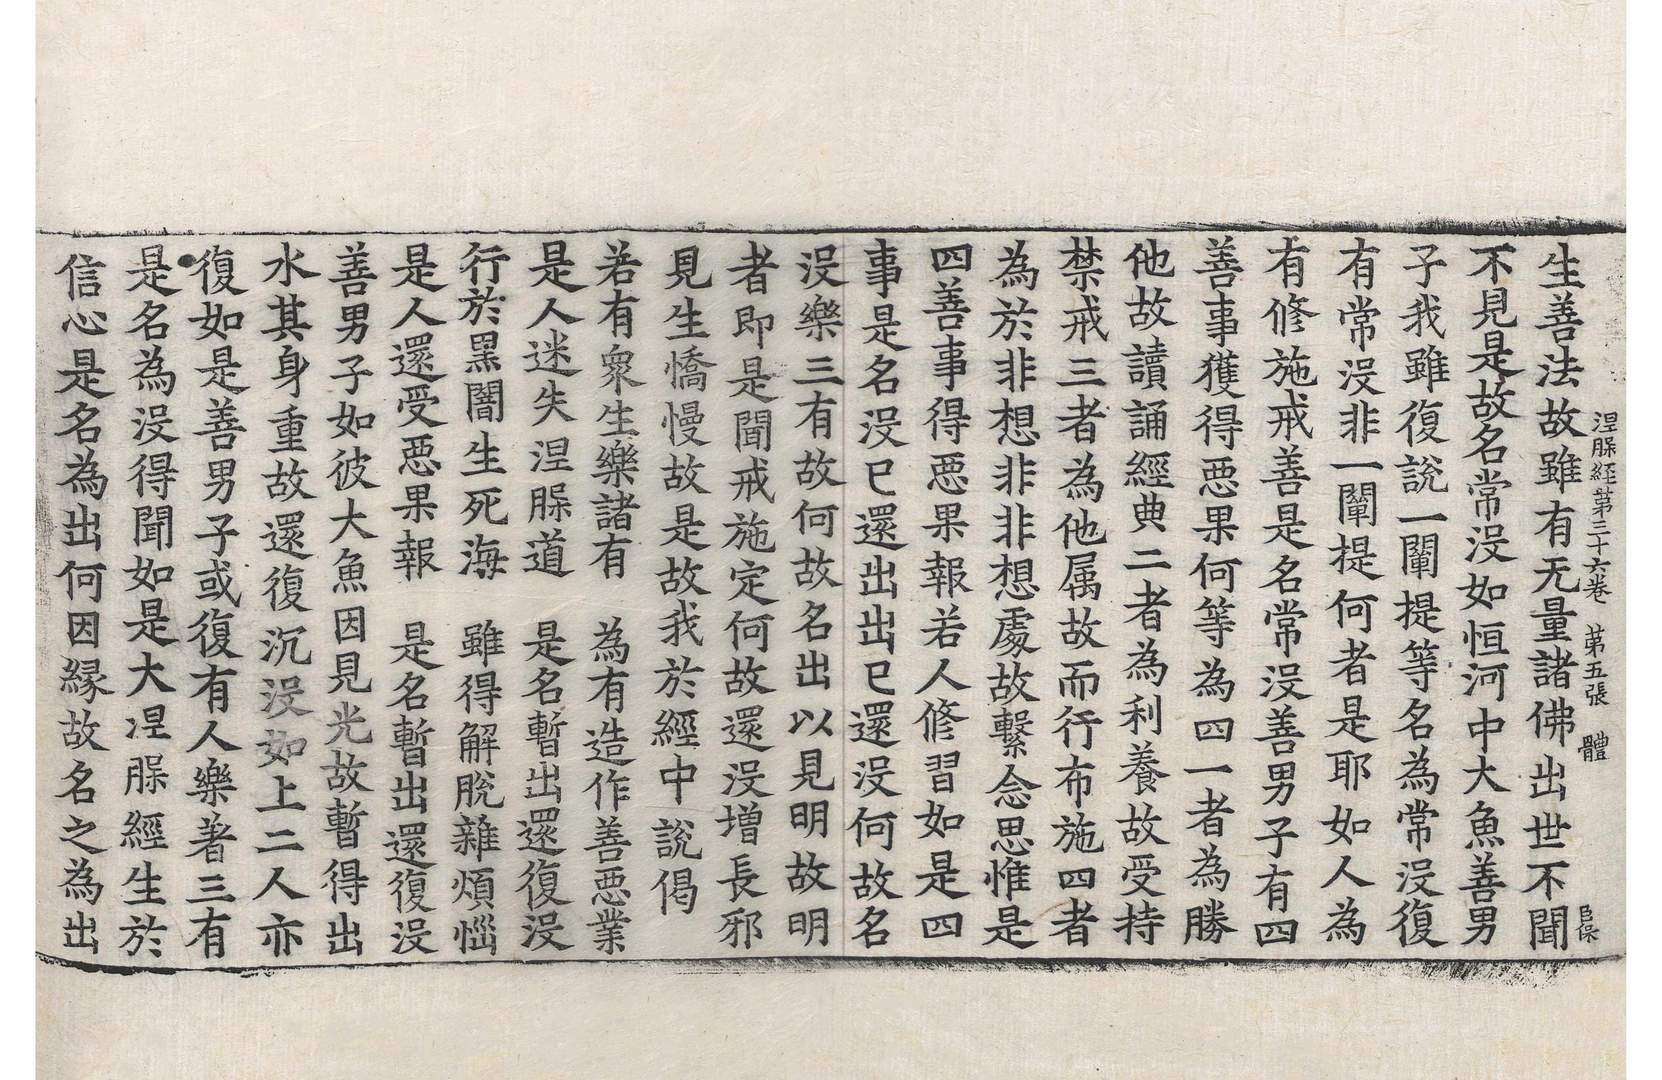 涅槃經第三十六卷　第五張　體
生善法故雖有无量諸佛出世不聞
不見是故名常没如恒河中大魚善男
子我雖復說一闡提等名為常没復
有常没非一闡提何者是耶如人為
有修施戒善是名常没善男子有四
善事獲得惡果何等為四一者為勝
他故讀誦經典二者為利養故受持
禁戒三者為他属故而行布施四者
為於非想非非想處故繫念思惟是
四善事得惡果報若人修習如是四
事是名没已還出出已還没何故名
没樂三有故何故名出以見明故明
者即是聞戒施定何故還没增長邪
見生憍慢故是故我於經中說偈
若有衆生樂諸有　為有造作善惡業
是人迷失涅槃道　是名暫出還復没
行於黒闇生死海　雖得解脫雜煩惱
是人還受惡果報　是名暫出還復没
善男子如彼大魚因見光故暫得出
水其身重故還復沉没如上二人亦
復如是善男子或復有人樂著三有
是名為没得聞如是大涅槃經生於
信心是名為出何因縁故名之為出